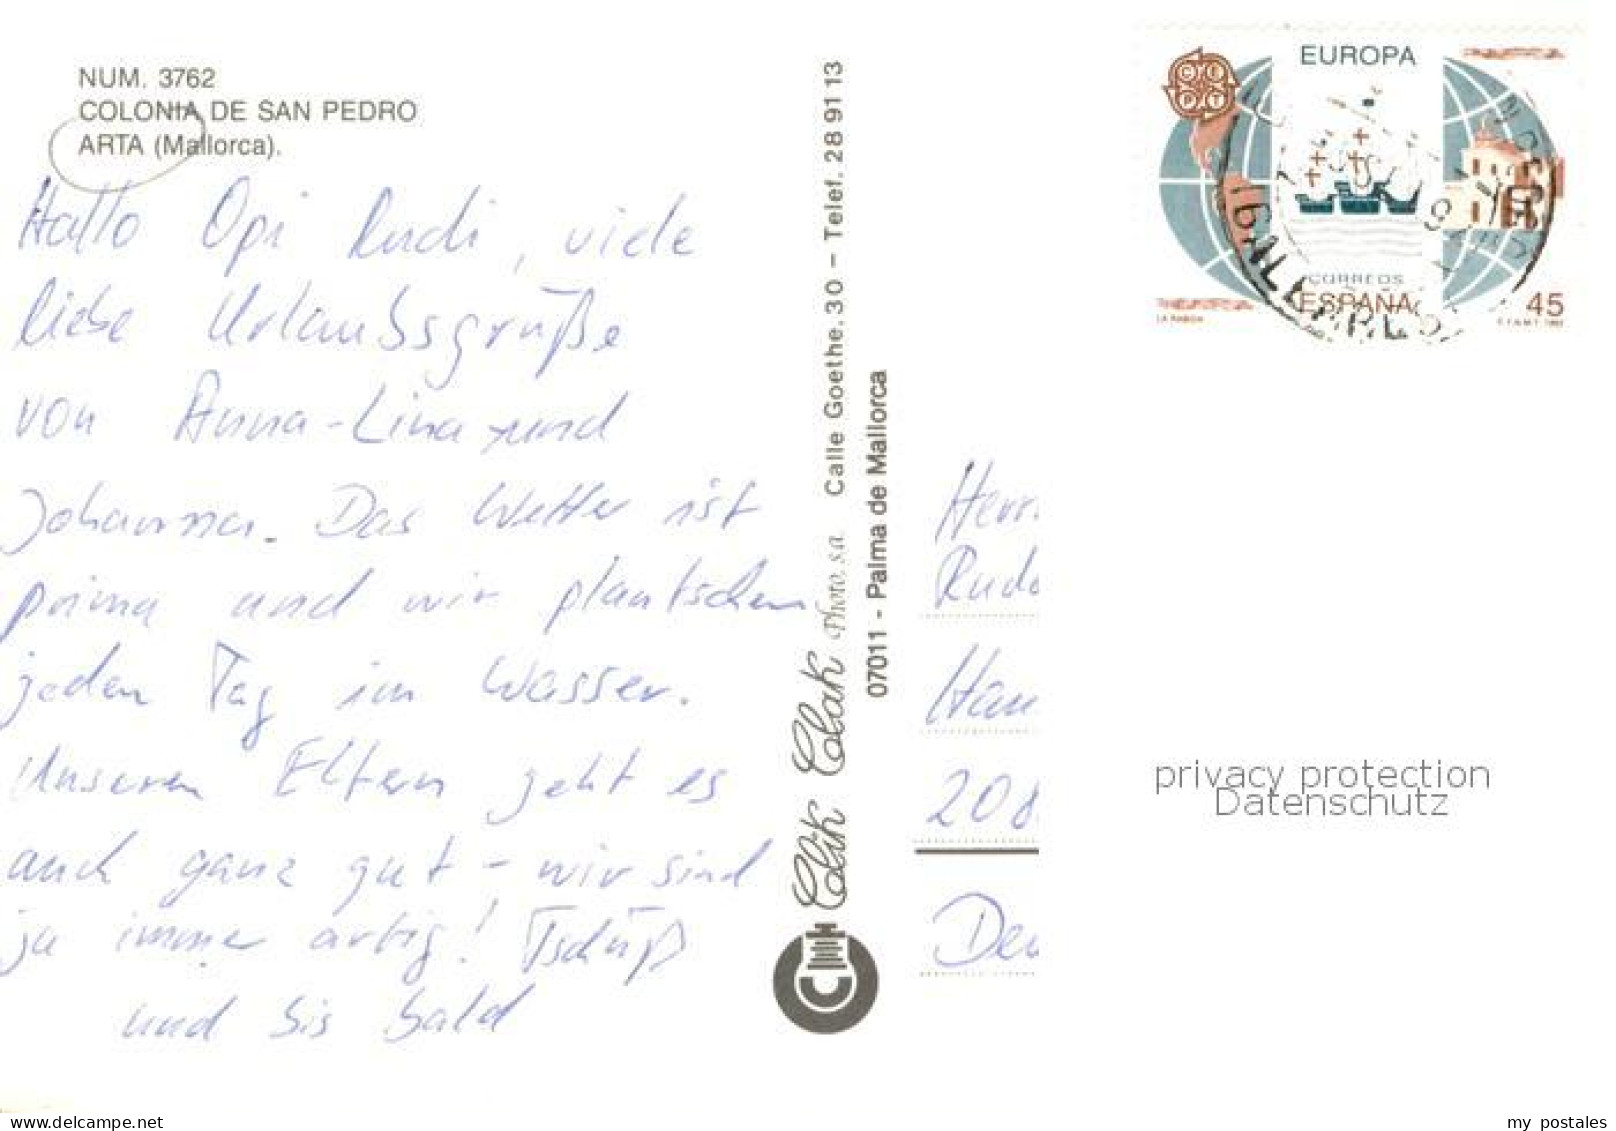 NUM. 3762
COLONIA DE SAN PEDRO
ARTA (Mallorca).
Hallo Opi Rudi, viele
liebe Urlaubsgrüße
von Anna-Lina und
Johanna. Das Wetter ist
prima und wir plantschen
jeden Tag im Wasser.
Unseren Eltern geht es
auch ganz gut - wir sind
ja immer artig! Tschüß
und bis bald
Clik Clak Photo, s.a. Calle Goethe, 30 - Telef. 28 91 13
07011 - Palma de Mallorca
CEPT
EUROPA
CORREOS
ESPAÑA
45
LA RABIDA
F.N.M.T. 1992
BALEARES
Herr
Rudo
Han
208
Deu
privacy protection
Datenschutz
www.delcampe.net
my postales